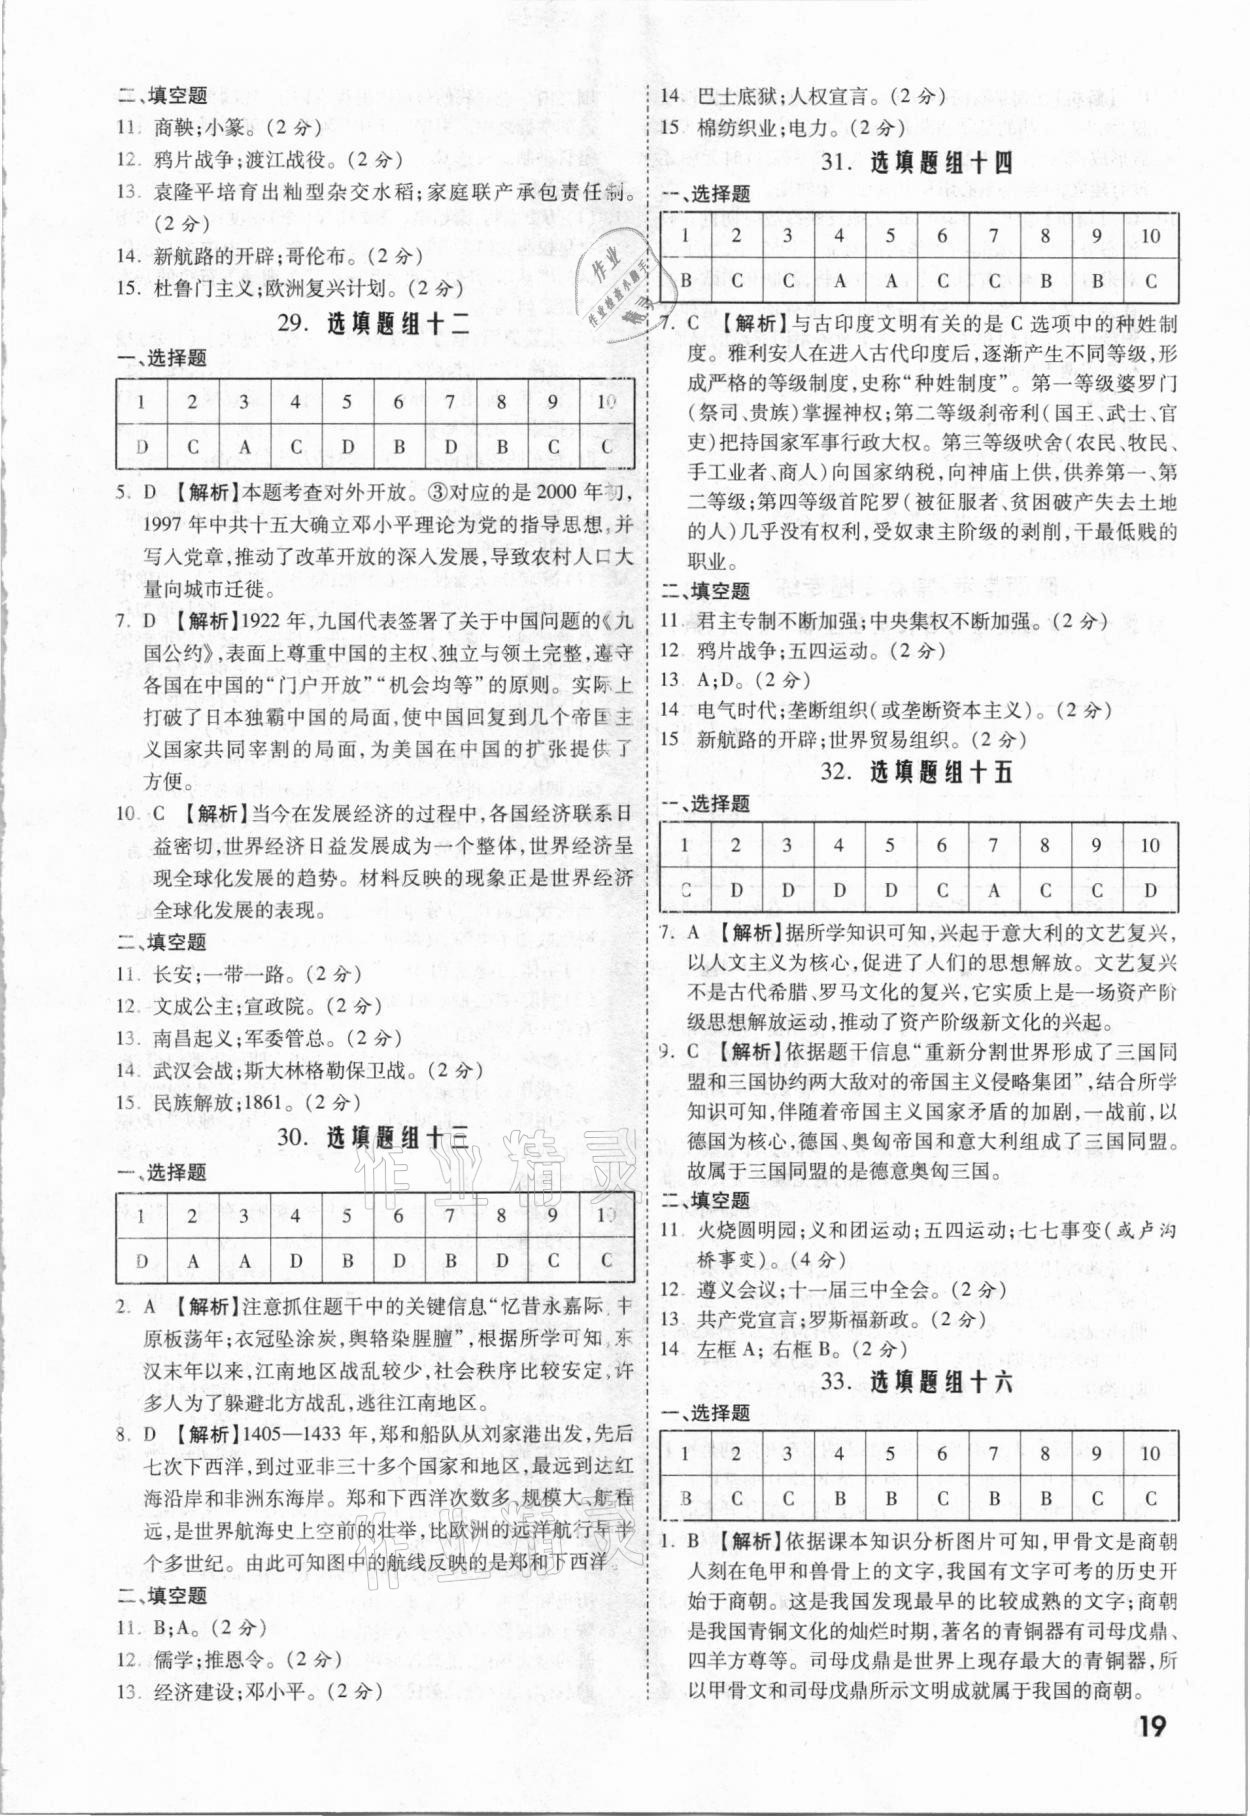 二、填空题
11. 商鞅;小篆。(2 分)
12. 鸦片战争;渡江战役。(2 分)
13. 袁隆平培育出籼型杂交水稻;家庭联产承包责任制。
(2 分)
14. 新航路的开辟;哥伦布。(2 分)
15. 杜鲁门主义;欧洲复兴计划。(2 分)
29. 选填题组十二
一、选择题
1 2 3 4 5 6 7 8 9 10
D C A C D B D B C C
5. D 【解析】本题考查对外开放。③对应的是 2000 年初,
1997 年中共十五大确立邓小平理论为党的指导思想,并
写入党章,推动了改革开放的深入发展,导致农村人口大
量向城市迁徙。
7. D 【解析】1922 年,九国代表签署了关于中国问题的《九
国公约》,表面上尊重中国的主权、独立与领土完整,遵守
各国在中国的“门户开放”“机会均等”的原则。实际上
打破了日本独霸中国的局面,使中国回复到几个帝国主
义国家共同宰割的局面,为美国在中国的扩张提供了
方便。
10. C 【解析】当今在发展经济的过程中,各国经济联系日
益密切,世界经济日益发展成为一个整体,世界经济呈
现全球化发展的趋势。材料反映的现象正是世界经济
全球化发展的表现。
二、填空题
11. 长安;一带一路。(2 分)
12. 文成公主;宣政院。(2 分)
13. 南昌起义;军委管总。(2 分)
14. 武汉会战;斯大林格勒保卫战。(2 分)
15. 民族解放;1861。(2 分)
30. 选填题组十三
一、选择题
1 2 3 4 5 6 7 8 9 10
D A A D B D B D C C
2. A 【解析】注意抓住题干中的关键信息“忆昔永嘉际,中
原板荡年;衣冠坠涂炭,舆辂染腥膻”,根据所学可知,东
汉末年以来,江南地区战乱较少,社会秩序比较安定,许
多人为了躲避北方战乱,逃往江南地区。
8. D 【解析】1405—1433 年,郑和船队从刘家港出发,先后
七次下西洋,到过亚非三十多个国家和地区,最远到达红
海沿岸和非洲东海岸。郑和下西洋次数多,规模大、航程
远,是世界航海史上空前的壮举,比欧洲的远洋航行早半
个多世纪。由此可知图中的航线反映的是郑和下西洋。
二、填空题
11. B;A。(2 分)
12. 儒学;推恩令。(2 分)
13. 经济建设;邓小平。(2 分)
14. 巴士底狱;人权宣言。(2 分)
15 棉纺织业;电力。(2 分)
31. 选填题组十四
一、选择题
1 2 3 4 5 6 7 8 9 10
B C C A A C C C B C
7. C 【解析】与古印度文明有关的是 C 选项中的种姓制
度。雅利安人在进入古代印度后,逐渐产生不同等级,形
成严格的等级制度,史称“种姓制度”。第一等级婆罗门
(祭司、贵族)掌握神权;第二等级刹帝利(国王、武士、官
吏)把持国家军事行政大权。第三等级吠舍(农民、牧民、
手工业者、商人)向国家纳税,向神庙上供,供养第一、第
二等级;第四等级首陀罗(被征服者、贫困破产失去土地
的人)几乎没有权利,受奴隶主阶级的剥削,干最低贱的
职业。
二、填空题
11. 君主专制不断加强;中央集权不断加强。(2 分)
12. 鸦片战争;五四运动。(2 分)
13. A;D。(2 分)
14 电气时代;垄断组织(或垄断资本主义)。(2 分)
15 新航路的开辟;世界贸易组织。(2 分)
32. 选填题组十五
一、选择题
1 2 3 4 5 6 7 8 9 10
C D D D D C A C C D
7. A 【解析】据所学知识可知,兴起于意大利的文艺复兴,
以人文主义为核心,促进了人们的思想解放。文艺复兴
不是古代希腊、罗马文化的复兴,它实质上是一场资产阶
级思想解放运动,推动了资产阶级新文化的兴起。
9. C 【解析】依据题干信息“重新分割世界形成了三国同
盟和三国协约两大敌对的帝国主义侵略集团”,结合所学
知识可知,伴随着帝国主义国家矛盾的加剧,一战前,以
德国为核心,德国、奥匈帝国和意大利组成了三国同盟。
故属于三国同盟的是德意奥匈三国。
二、填空题
11. 火烧圆明园;义和团运动;五四运动;七七事变(或卢沟
桥事变)。(4 分)
12. 遵义会议;十一届三中全会。(2 分)
13. 共产党宣言;罗斯福新政。(2 分)
14 左框 A; 右框 B。(2 分)
33. 选填题组十六
一、选择题
1 2 3 4 5 6 7 8 9 10
B C C B B C B B C C
1. B 【解析】依据课本知识分析图片可知,甲骨文是商朝
人刻在龟甲和兽骨上的文字,我国有文字可考的历史开
始于商朝。这是我国发现最早的比较成熟的文字;商朝
是我国青铜文化的灿烂时期,著名的青铜器有司母戊鼎、
四羊方尊等。司母戊鼎是世界上现存最大的青铜器,所
以甲骨文和司母戊鼎所示文明成就属于我国的商朝。
19
作业精灵
作业精灵